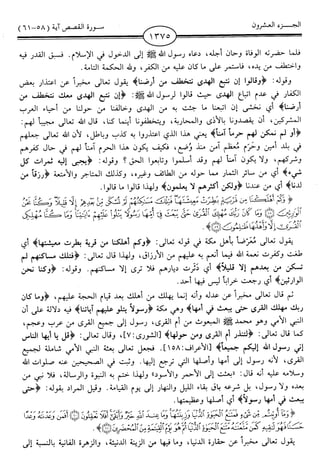 الجـزء العشرون
١٣٧٥
سورة القصص آية (٥٨-٦١)
فلما حضرته الوفاة وحان أجله، دعاه رسول الله ﷺ إلى الدخول في الإسلام. فسبق القدر فيه
واختطف من يده، فاستمر على ما كان عليه من الكفر، ولله الحكمة التامة.
وقوله: ﴿وقالوا إن نتبع الهدى نتخطف من أرضنا﴾ يقول تعالى مخبراً عن اعتذار بعض
الكفار في عدم اتباع الهدى حيث قالوا لرسول الله ﷺ: ﴿إن نتبع الهدى معك نتخطف من
أرضنا﴾ أي نخشى إن اتبعنا ما جئت به من الهدى وخالفنا من حولنا من أحياء العرب
المشركين، أن يقصدونا بالأذى والمحاربة، ويتخطفونا أينما كنا، قال الله تعالى مجيباً لهم:
﴿أو لم نمكن لهم حرماً آمناً﴾ يعني هذا الذي اعتذروا به كذب وباطل، لأن الله تعالى جعلهم
في بلد أمين وحرم معظم آمن منذ وُضع، فكيف يكون هذا الحرم آمناً لهم في حال كفرهم
وشركهم، ولا يكون آمناً لهم وقد أسلموا وتابعوا الحق؟ وقوله: ﴿يجبى إليه ثمرات كل
شيء﴾ أي من سائر الثمار مما حوله من الطائف وغيره، وكذلك المتاجر والأمتعة ﴿رزقاً من
لدنا﴾ أي من عندنا ﴿ولكن أكثرهم لا يعلمون﴾ ولهذا قالوا ما قالوا.
﴿وَكَمْ أَهْلَكْنَا مِن قَرْيَةٍ بَطِرَتْ مَعِيشَتَهَا فَتِلْكَ مَسَاكِنُهُمْ لَمْ تُسْكَن مِّن بَعْدِهِمْ إِلَّا قَلِيلًا وَكُنَّا نَحْنُ
الْوَارِثِينَ وَمَا كَانَ رَبُّكَ مُهْلِكَ الْقُرَى حَتَّى يَبْعَثَ فِي أُمِّهَا رَسُولًا يَتْلُو عَلَيْهِمْ آيَاتِنَا وَمَا كُنَّا مُهْلِكِي
الْقُرَى إِلَّا وَأَهْلُهَا ظَالِمُونَ﴾
يقول تعالى مُعرِّضاً بأهل مكة في قوله تعالى: ﴿وكم أهلكنا من قرية بطرت معيشتها﴾ أي
طغت وكفرت نعمة الله فيما أنعم به عليهم من الأرزاق، ولهذا قال تعالى: ﴿فتلك مساكنهم لم
تسكن من بعدهم إلا قليلاً﴾ أي دثرت ديارهم فلا ترى إلا مساكنهم. وقوله: ﴿وكنا نحن
الوارثين﴾ أي رجعت خراباً ليس فيها أحد.
ثم قال تعالى مخبراً عن عدله وأنه إنما يهلك من أهلك بعد قيام الحجة عليهم، ﴿وما كان
ربك مهلك القرى حتى يبعث في أمها﴾ وهي مكة ﴿رسولاً يتلو عليهم آياتنا﴾ فيه دلالة على أن
النبي الأمي وهو محمد ﷺ المبعوث من أم القرى، رسول إلى جميع القرى من عرب وعجم،
كما قال تعالى: ﴿لتنذر أم القرى ومن حولها﴾ [الشورى: ٧]، وقال تعالى: ﴿قل يا أيها الناس
إني رسول الله إليكم جميعاً﴾ [الأعراف: ١٥٨]. فجعل تعالى بعثة النبي الأمي شاملة لجميع
القرى، لأنه رسول إلى أمها وأصلها التي ترجع إليها. وثبت في الصحيحين عنه صلوات الله
وسلامه عليه أنه قال: «بعثت إلى الأحمر والأسود» ولهذا ختم به النبوة والرسالة، فلا نبي من
بعده ولا رسول، بل شرعه باق بقاء الليل والنهار إلى يوم القيامة. وقيل المراد بقوله: ﴿حتى
يبعث في أمها رسولاً﴾ أي أصلها وعظيمتها.
﴿وَمَا أُوتِيتُم مِّن شَيْءٍ فَمَتَاعُ الْحَيَاةِ الدُّنْيَا وَزِينَتُهَا وَمَا عِندَ اللَّهِ خَيْرٌ وَأَبْقَى أَفَلَا تَعْقِلُونَ أَفَمَن وَعَدْنَاهُ وَعْدًا
حَسَنًا فَهُوَ لَاقِيهِ كَمَن مَّتَّعْنَاهُ مَتَاعَ الْحَيَاةِ الدُّنْيَا ثُمَّ هُوَ يَوْمَ الْقِيَامَةِ مِنَ الْمُحْضَرِينَ﴾
يقول تعالى مخبراً عن حقارة الدنيا، وما فيها من الزينة الدنيئة، والزهرة الفانية بالنسبة إلى